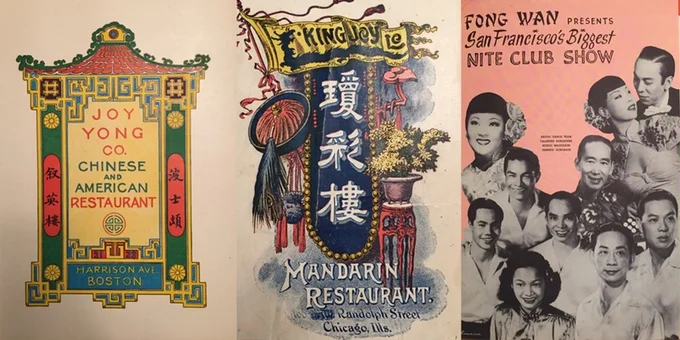 JOY
YONG
CO.
CHINESE
AND
AMERICAN
RESTAURANT
叙英樓
波士頓
HARRISON AVE.
BOSTON
KING JOY LO
瓊彩樓
MANDARIN
RESTAURANT.
Randolph Street
Chicago, Ills.
FONG WAN PRESENTS
San Francisco's Biggest
NITE CLUB SHOW